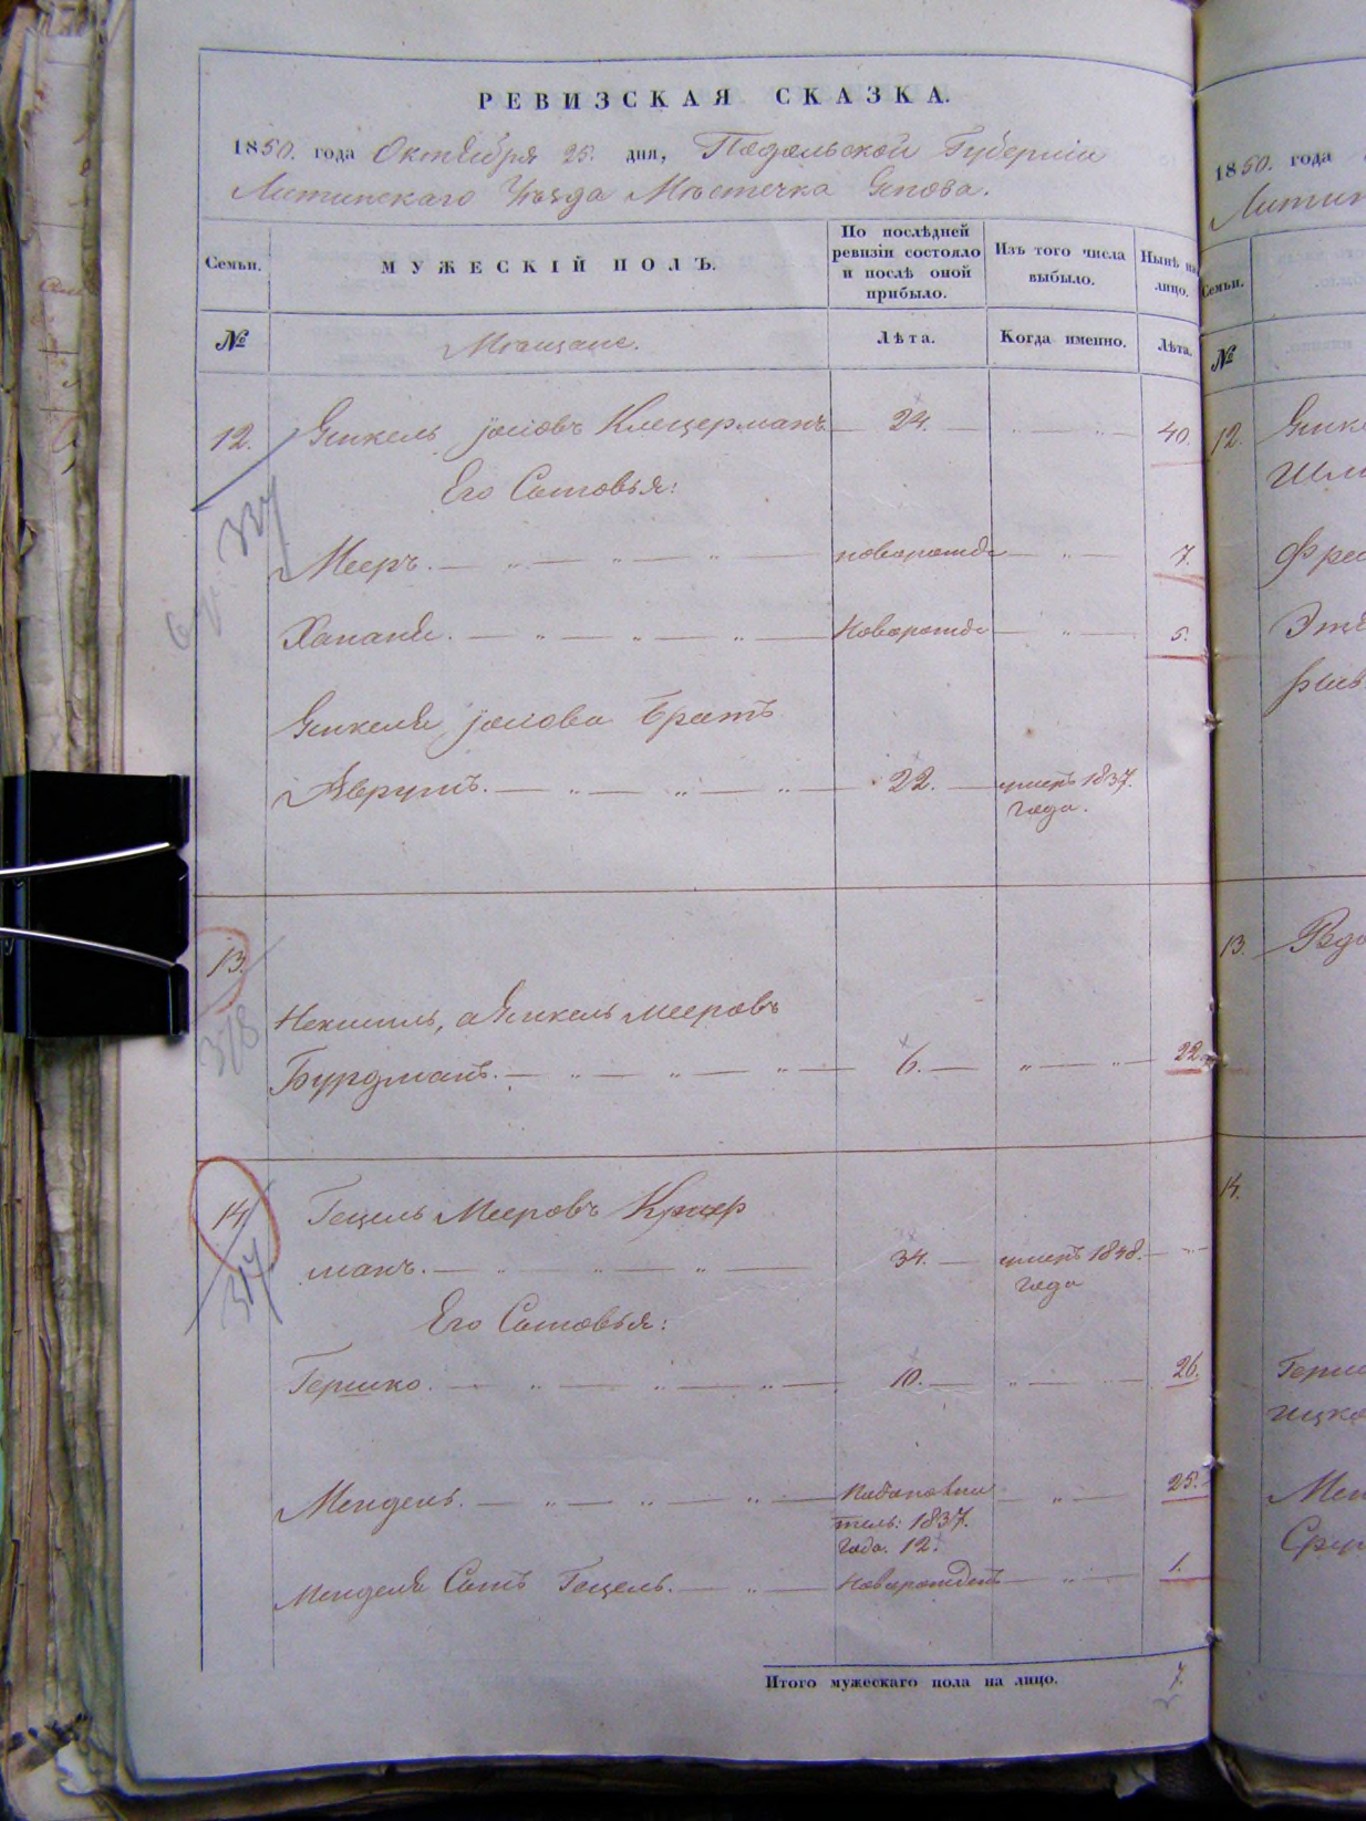 РЕВИЗСКАЯ СКАЗКА.
1850. года Октября 25. дня, Подольской Губерніи
Литинскаго Уѣзда Мѣстечка Янова.
Семьи.
МУЖЕСКІЙ ПОЛЪ.
По послѣдней ревизіи состояло и послѣ оной прибыло.
Изъ того числа выбыло.
Нынѣ на лицо.
№
Мѣщане.
Лѣта.
Когда именно.
Лѣта.
12. Янкель Іосіовъ Клецерманъ 24. 40.
Его Сыновья:
337
Мееръ. новорожде 7.
Хананя. Новорожде 5.
Янкеля Іосіова Братъ
Аврумъ. 22. умеръ 1837.
года.
13.
378
Нехимиль, а Янкель Мееровъ
Бурдманъ. 6. 22
14. Гецель Мееровъ
317
манъ. 34. умеръ 1848.
года
Его Сыновья:
Гершко. 10. 26.
Мендель. 25.
1837.
года. 12.
Менделя Сынъ Гецель. Новорожденъ 1.
Итого мужескаго пола на лицо. 7.
1850. года
Литин
Семьи.
№
12. Янке
Шле
13.
14.
Герш
Ицко
Мен